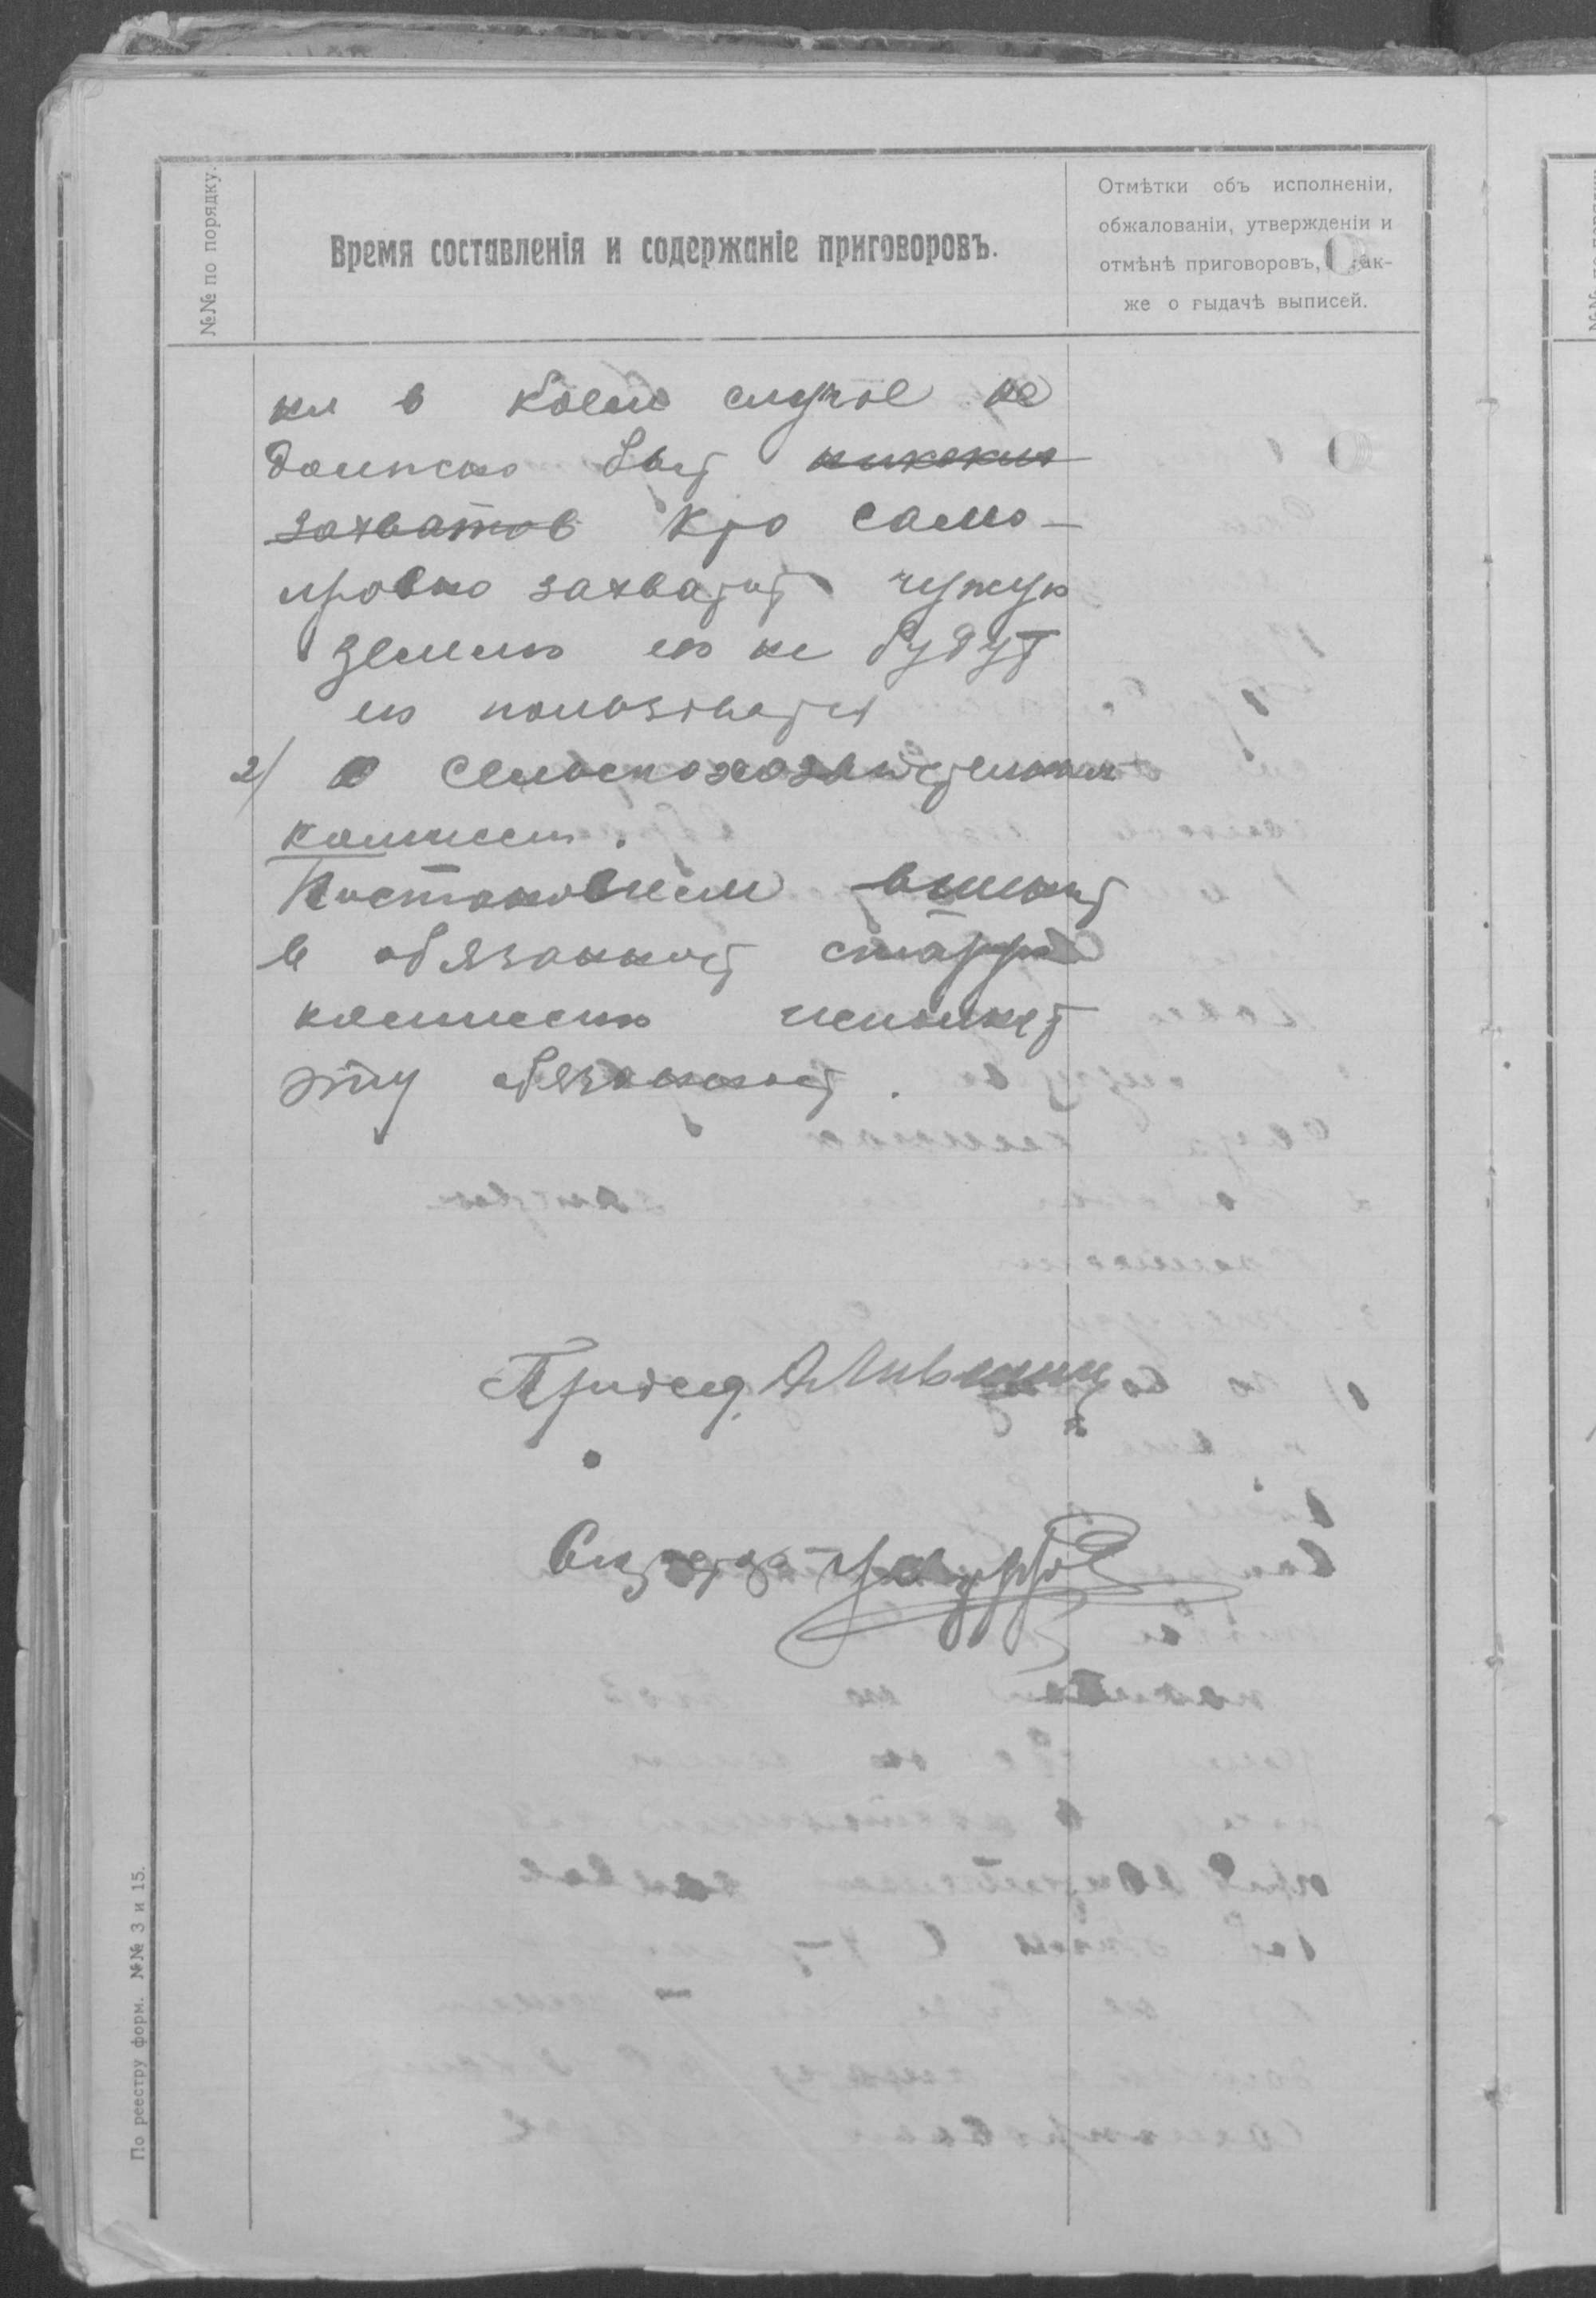 №№ по порядку.
Время составленія и содержаніе приговоровъ.
Отмѣтки объ исполненіи,
обжалованіи, утвержденіи и
отмѣнѣ приговоровъ, так-
же о выдачѣ выписей.
ни в коем случае не
должно быт никаких
захватов Кто само-
провно захватит чужую
землю ею не будут
ею ползоватся
2) О Сельскохозяйственной
комисси.
Постановляем вменит
в обязанност старой
комиссию исполнят
эту обязаност.
Придсед.
Секретарь
По реестру форм. №№ 3 и 15.